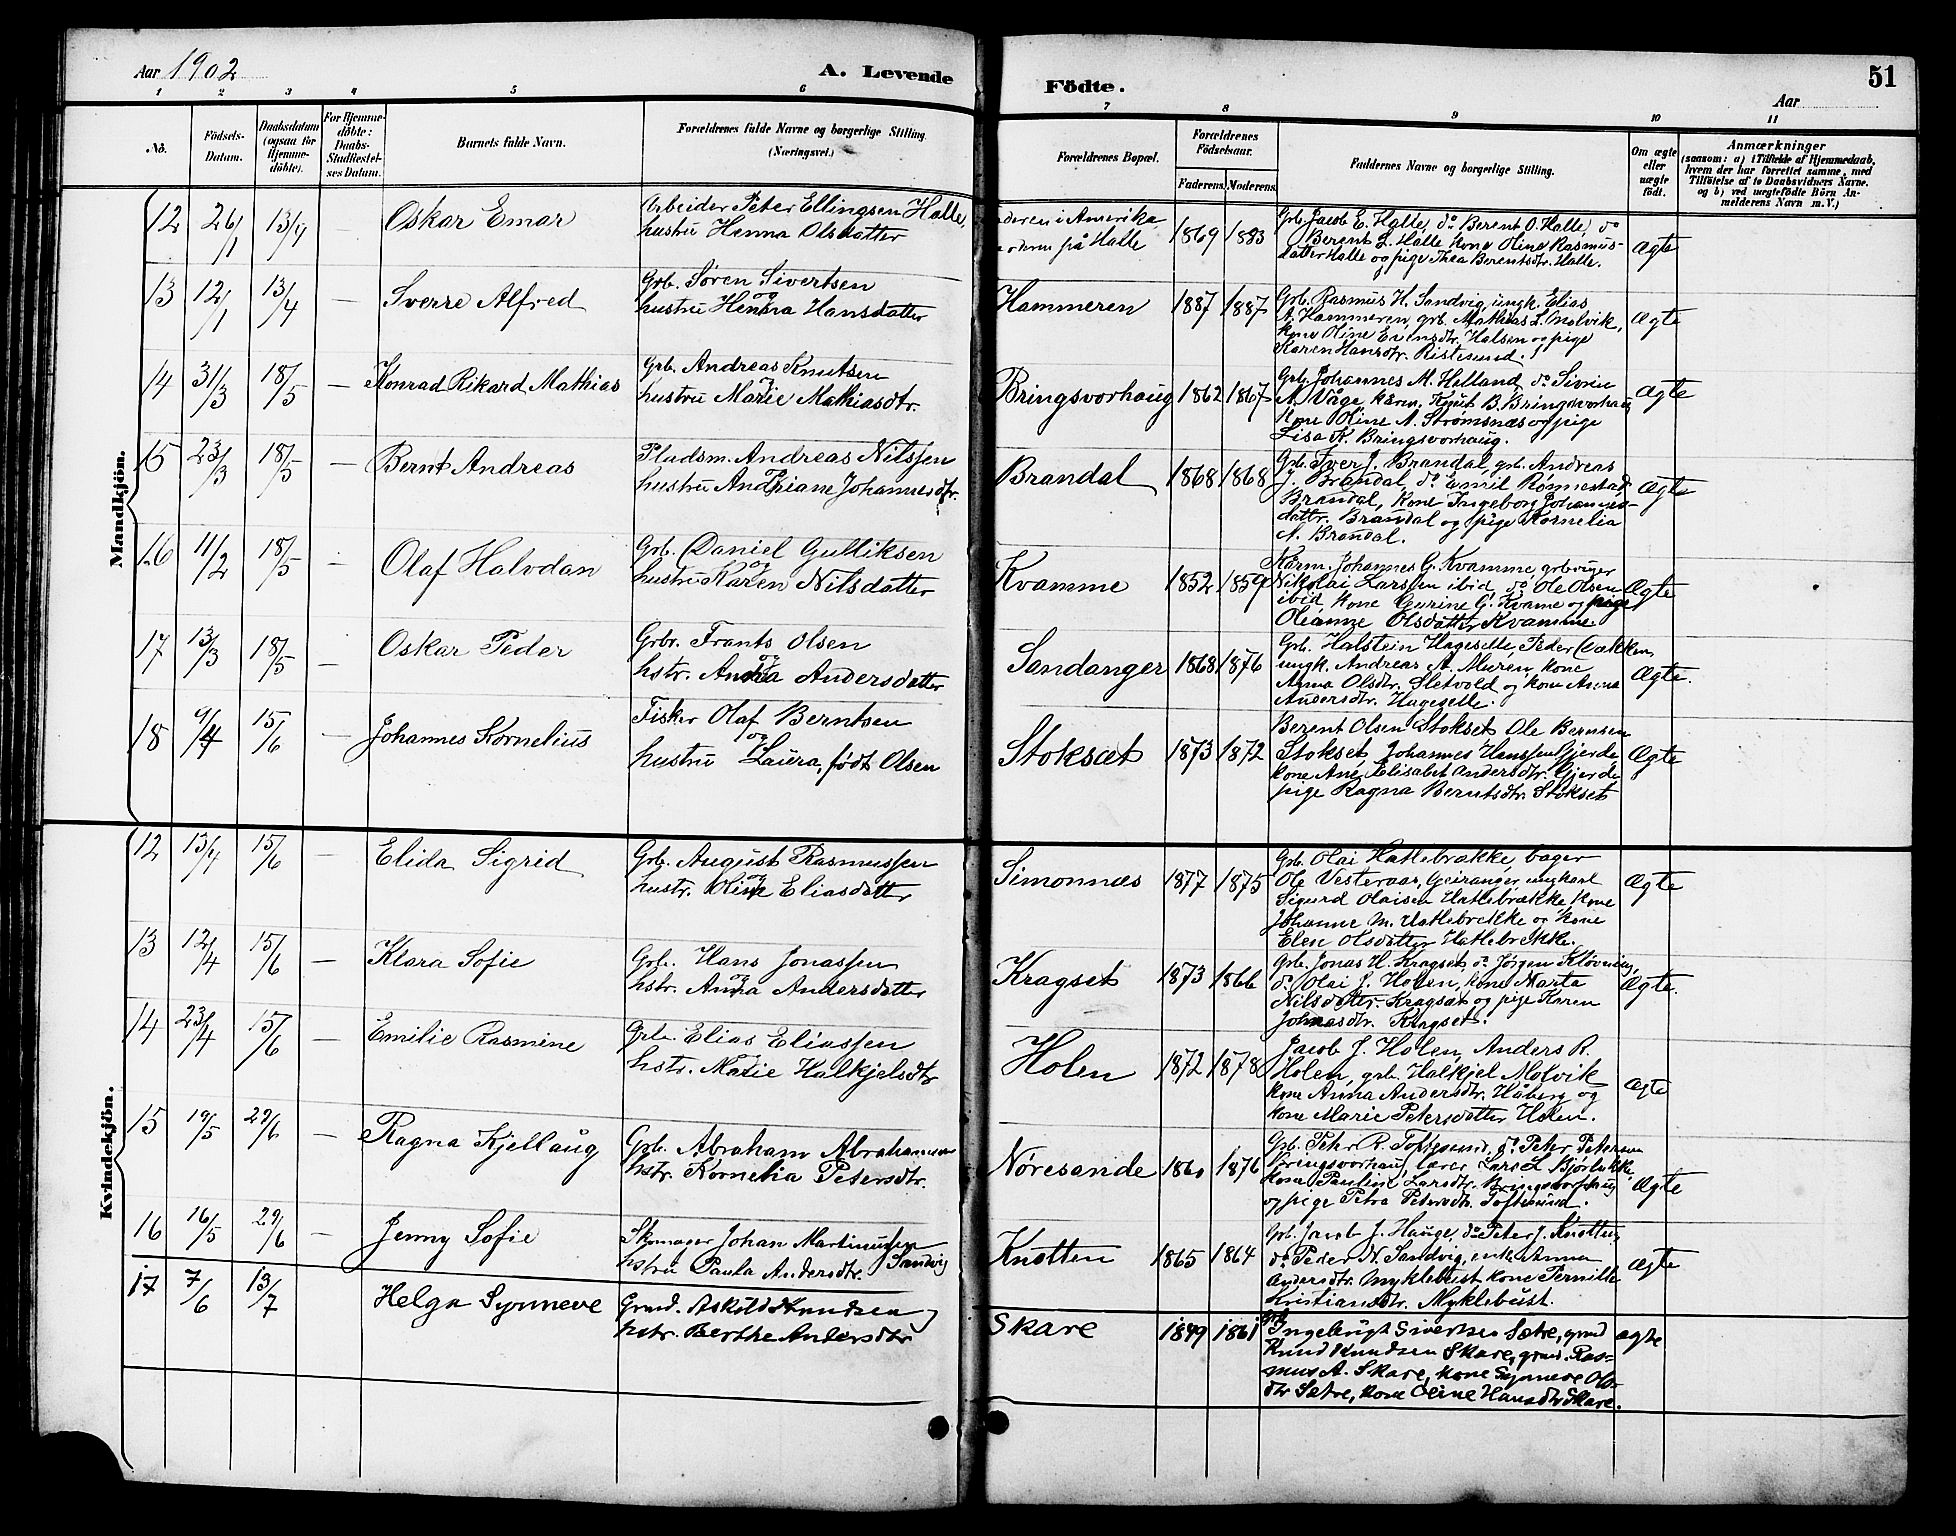 Aar 1902
A. Levende
Födte.
51
Aar
1 2 3 4 5 6
7 8 9 10 11
No.
Födsels-
Datum.
Daabsdatum
(ogsaa for
Hjemme-
döbte).
For Hjemme-
döbte:
Daabs-
Stadfæstel-
ses Datum.
Barnets fulde Navn.
Forældrenes fulde Navne og borgerlige Stilling.
(Næringsvei.)
Forældrenes Bopæl.
Forældrenes
Födselsaar.
Faderens. Moderens.
Faddernes Navne og borgerlige Stilling.
Om ægte
eller
uægte
født.
Anmærkninger
(saasom: a) i Tilfælde af Hjemmedaab,
hvem der har forrettet samme, med
Tilföielse af to Daabsvidners Navne.
og b) ved uægtefödte Börn An-
melderens Navn m. V.)
Mandkjön.
12 26/1 13/4 — Oskar Emar
Arbeider Peter Ellingsen Halle,
hustru Henna Olsdatter
deren i Amerika
oderen på Halle
1869 1883
Grb. Jacob E. Halle, do Berent O. Halle, do
Berent L. Halle kone Oline Rasmus-
datter Halle og pige Thea Berentsdtr. Halle.
Ægte
13 12/1 13/4 — Sverre Alfred
Grb. Søren Sivertsen
og
hustru Henna Hansdatter
Hammeren 1887 1887
Grb. Rasmus H. Sandvig, ungk. Elias
A. Hammeren, grb. Mathias L. Molvik,
kone Oline Evensdtr. Halsen og pige
Karen Hansdtr. Ristesund.
Ægte
14 31/3 18/5 — Konrad Rikard Mathias
Grb. Andreas Knutsen
og
hustru Marie Mathiasdtr.
Bringsvorhaug 1862 1867
Grb. Johannes M. Helland, do Sivrin
A. Våge, kårm. Knut B. Bringsvorhaug
kone Oline A. Strømsnæs og pige
Lisa K. Bringsvorhaug.
Ægte
15 23/3 18/5 — Bernt Andreas
Pladsm. Andreas Nilssen
og
hustru Andriane Johannesdtr.
Brandal 1868 1868
Grb. Iver J. Brandal, grb. Andreas
J. Brandal, do Emil Rønnestad
Brandal, kone Ingeborg Johannes-
dattr. Brandal og pige Kornelia
A. Brandal.
Ægte
16 11/2 18/5 — Olaf Halvdan
Grb. Daniel Gulliksen
og
hustru Karen Nilsdatter
Kvamme 1852 1859
Kårm. Johannes G. Kvamme, grb
Nikolai Larssen ibid, do Ole Olsen
ibid, kone Gurine G. Kvame og pige
Oleanne Olsdatter Kvamme.
Ægte
17 13/3 18/5 — Oskar Peder
Grbr. Frants Olsen
og
hstr. Anna Andersdatter
Sandanger 1868 1876
Grb. Halstein Hageselle, Peder
ungk. Andreas A. Muren, kone
Anna Olsdtr. Sletvold og kone Anna
Andersdtr. Hageselle.
Ægte.
18 9/4 15/6 — Johannes Kornelius
Fisker Olaf Berntsen
og
hustru Laura, født Olsen
Stoksæt 1873 1872
Berent Olsen Stokset Ole Bernsen
Stokset, Johannes Hanssen Gjerde
kone Ane Elisabet Andersdtr. Gjerde
pige Ragna Berntsdtr. Stokset
Ægte
Kvindekjön.
12 13/4 15/6 — Elida Sigrid
Grb. August Rasmussen
og
hustr. Oline Eliasdatter
Simonnæs 1877 1875
Grb. Olai Hatlebrække, bager
Ole Vesteraas, Geiranger, ungkarl
Sigurd Olaisen Hatlebrække kone
Johanne M. Hatlebrekke og kone
Elen Olsdatter Hatlebrekke.
Ægte
13 12/4 15/6 — Klara Sofie
Grb. Hans Jonassen
og
hstr. Anna Andersdatter
Kragset 1873 1866
Grb. Jonas H. Kragset, do Jørgen Kløvning,
do Olai J. Holen, kone Marta
Nilsdatter Kragsæt og pige Karen
Johnasdtr. Kragset.
Ægte.
14 23/4 15/6 — Emilie Rasmine
Grb. Elias Eliassen
og
hstr. Marie Halkjelsdtr
Holen 1872 1878
Jacob J. Holen, Anders R.
Holen, grb. Halkjel Molvik
kone Anna Andersdtr. Håberg og
kone Marie Petersdatter Holen.
Ægte
15 19/5 29/6 — Ragna Kjellaug
Grb. Abraham Abrahamsen
hstr. Kornelia Petersdtr.
Nøresande 1860 1876
Grb. Peter R. Toftesund, do Peter Petersen
Bringsvorhaug, lærer Lars L. Bjørlykke,
kone Pauline Larsdtr. Bringsvorhaug
og pige Petra Petersdtr. Toftesund.
Ægte
16 16/5 29/6 — Jenny Sofie
Skomager Johan Martinussen
Sandvig
hstru Paula Andersdtr.
Knotten 1865 1864
Grb. Jacob J. Hauge, do Peter J. Knotten,
do Peder N. Sandvig, enke Anna
Andersdtr. Myklebust kone Pernille
Kristiansdtr. Myklebust.
Ægte
17 7/6 13/7 Helga Synneve
Grmd. Askold Knudsen
hstr. Berthe Andersdtr
Skare 1849 1861
Grb.
Ingebrigt Sivertsen Sætre, grmd
Knud Knudsen Skare, grmd. Ras-
mus A. Skare, kone Synneve Ols-
dtr Sætre, kone Oline Hansdtr Skare.
ægte